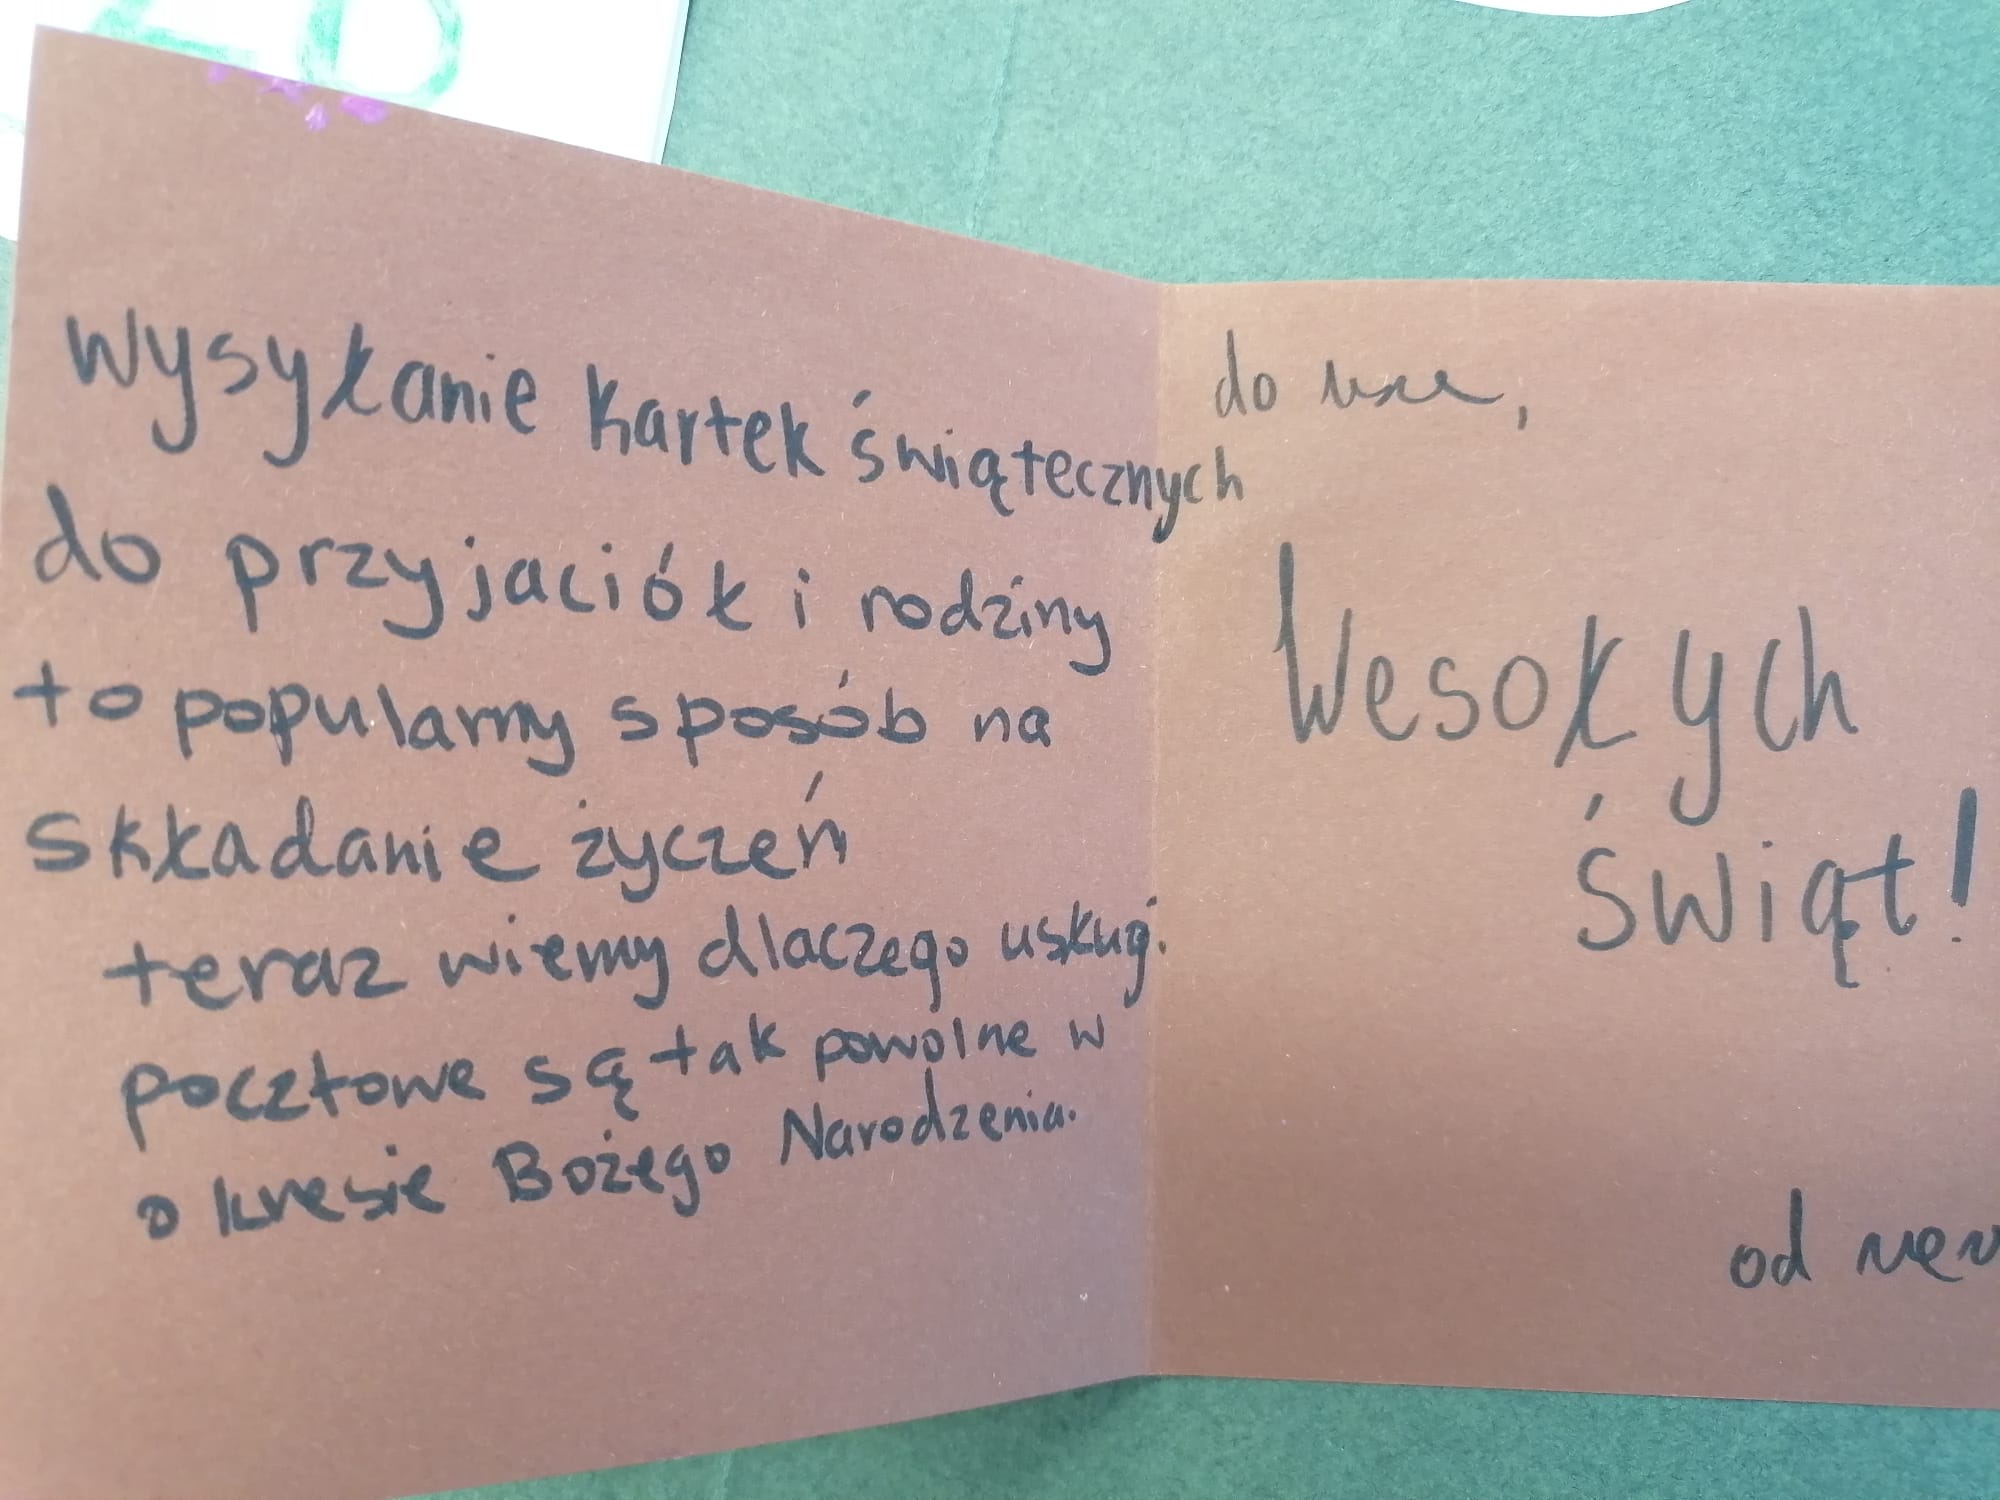 Wysyłanie kartek świątecznych
do przyjaciół i rodziny
to popularny sposób na
składanie życzeń
teraz wiemy dlaczego usługi
pocztowe są tak powolne w
okresie Bożego Narodzenia.
do
Wesołych
świąt!
od